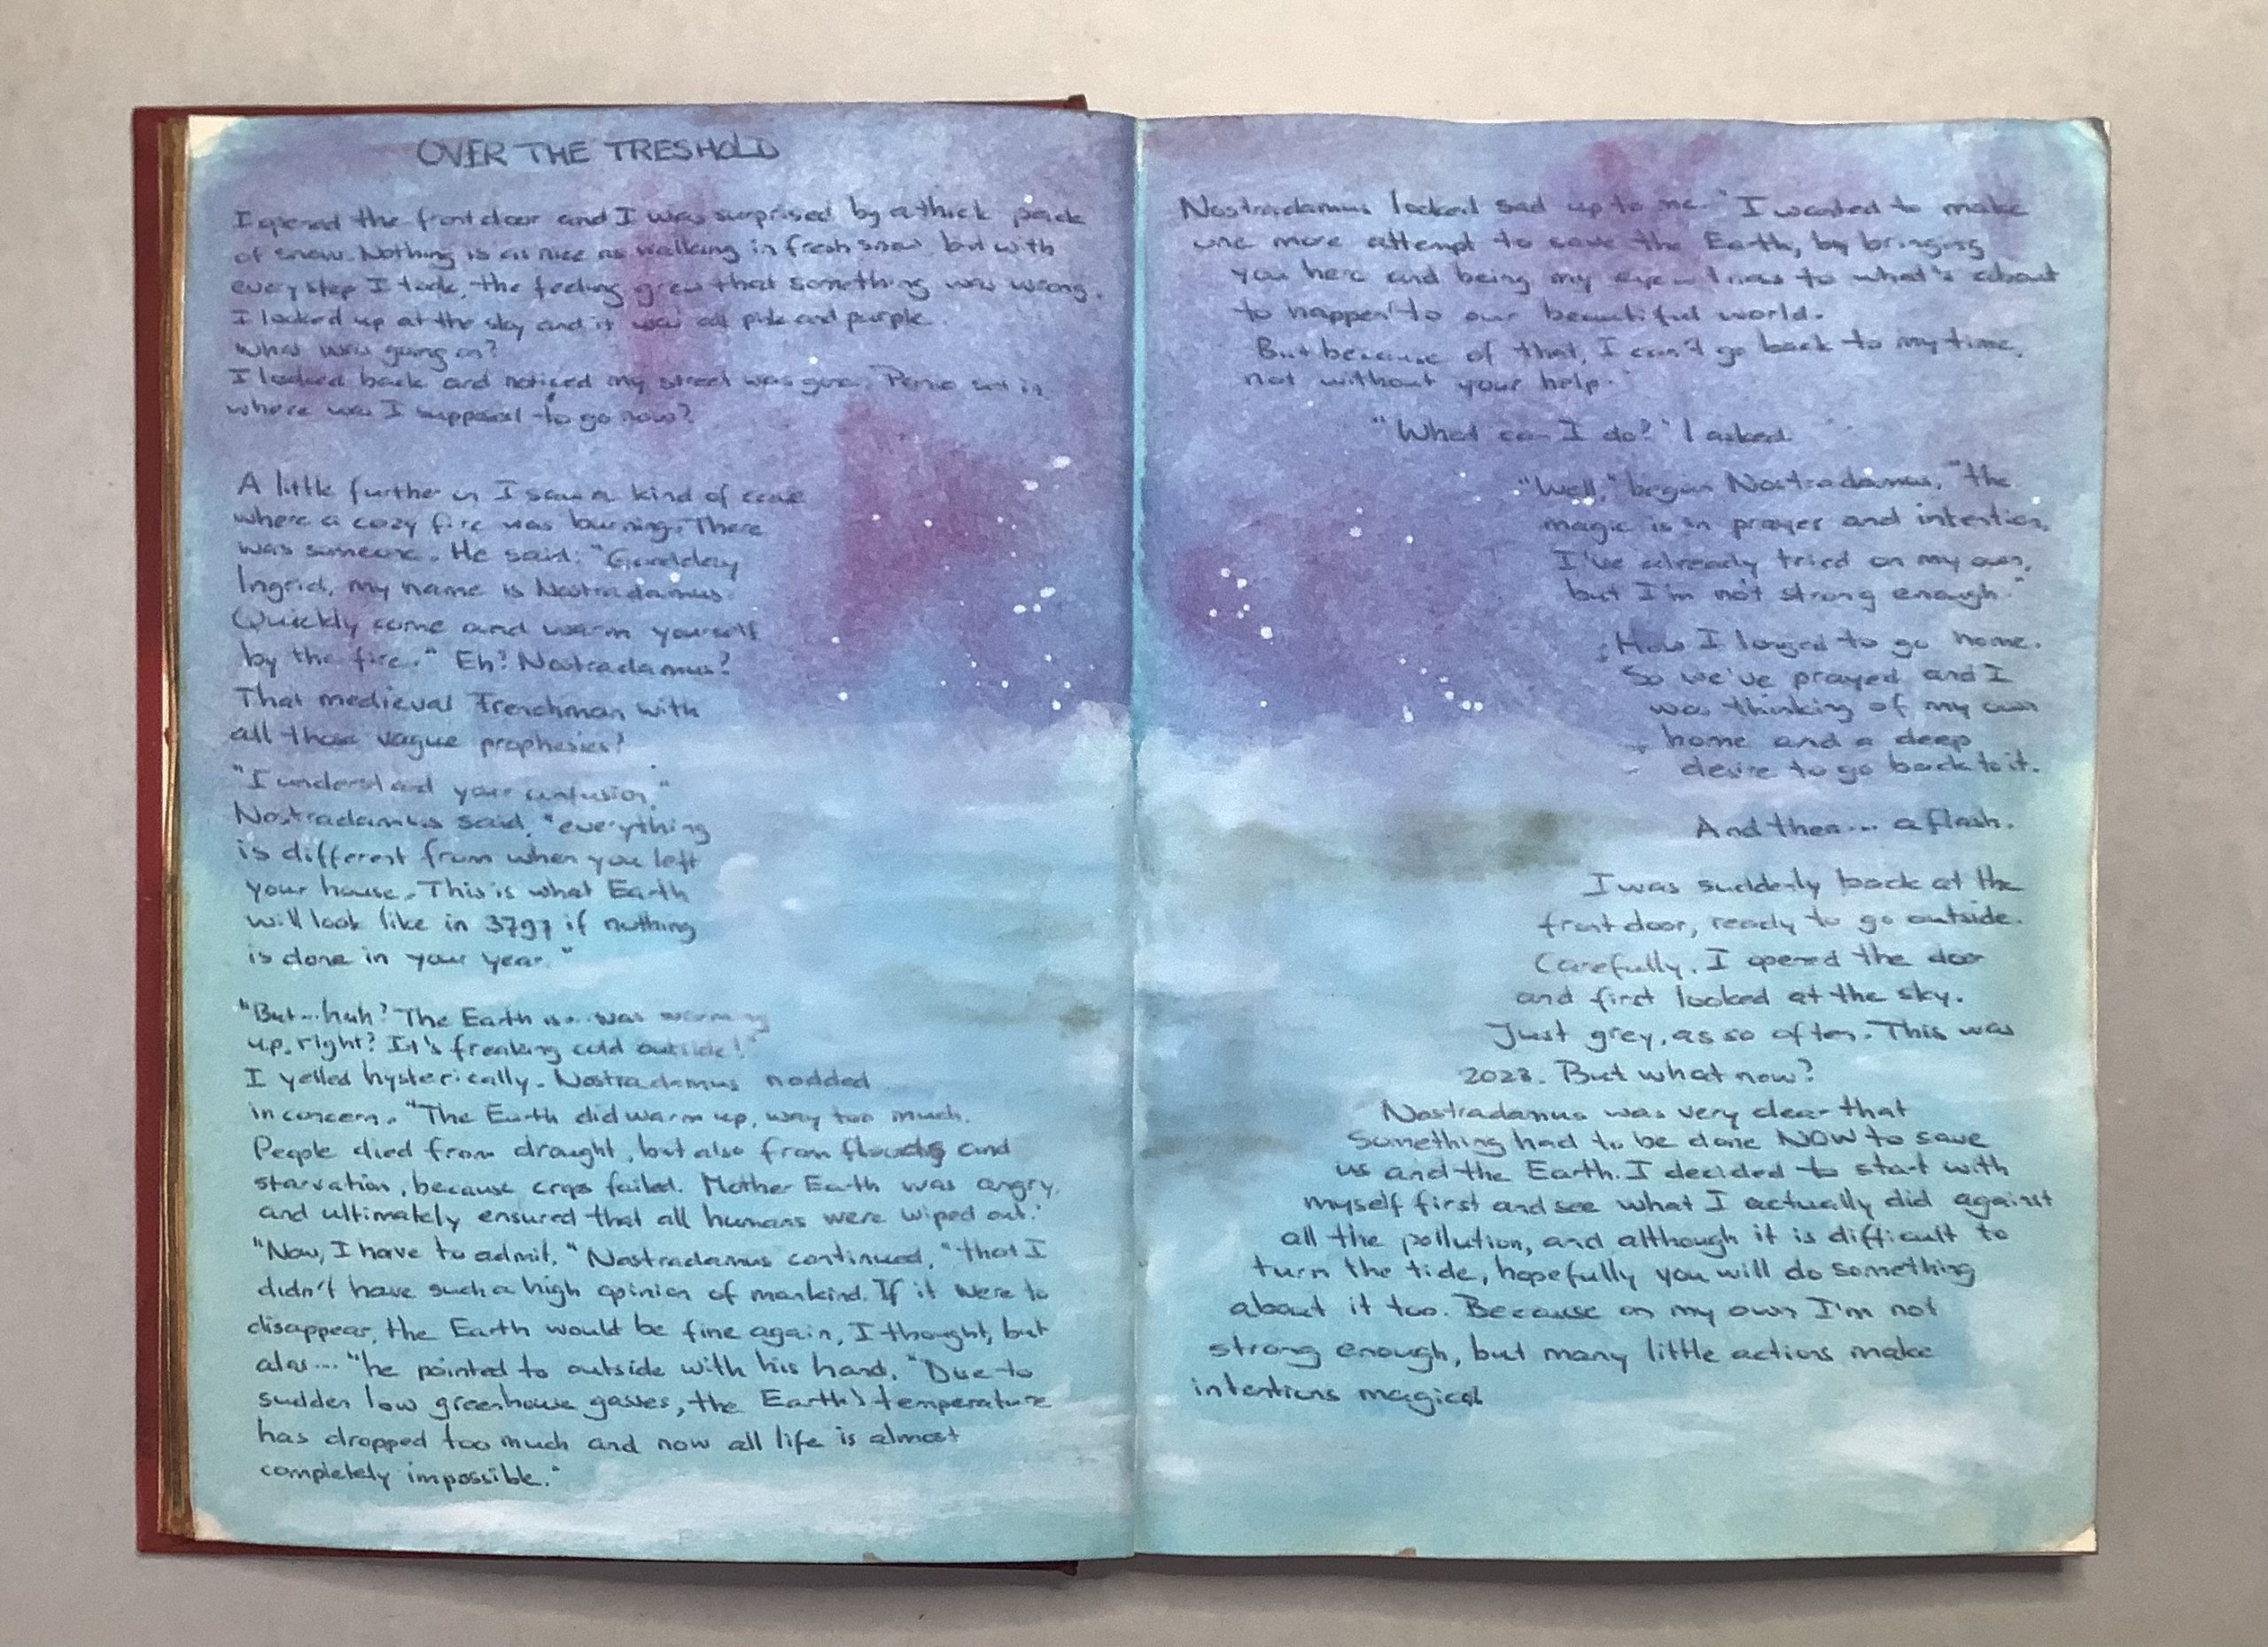 OVER THE TRESHOLD
I opened the front door and I was surprised by a thick pack
of snow. Nothing is as nice as walking in fresh snow, but with
every step I took, the feeling grew that something was wrong.
I looked up at the sky and it was all pink and purple.
What was going on?
I looked back and noticed my street was gone. Panic set in
where was I supposed to go now?
A little further on I saw a kind of cave
where a cozy fire was burning. There
was someone. He said: "Goodday
Ingrid, my name is Nostradamus.
Quickly come and warm yourself
by the fire." Eh? Nostradamus?
That medieval Frenchman with
all those vague prophesies?
"I understand your confusion,"
Nostradamus said, "everything
is different from when you left
your house. This is what Earth
will look like in 3797 if nothing
is done in your year."
"But...huh? The Earth is... was warming
up, right? It's freaking cold outside!"
I yelled hysterically. Nostradamus nodded
in concern. "The Earth did warm up, way too much.
People died from drought, but also from floods and
starvation, because crops failed. Mother Earth was angry,
and ultimately ensured that all humans were wiped out."
"Now, I have to admit," Nostradamus continued, "that I
didn't have such a high opinion of mankind. If it were to
disappear, the Earth would be fine again, I thought, but
alas..." he pointed to outside with his hand, "Due to
sudden low greenhouse gasses, the Earth's temperature
has dropped too much and now all life is almost
completely impossible."
Nostradamus looked sad up to me. "I wanted to make
one more attempt to save the Earth, by bringing
you here and being my eyewitness to what's about
to happen to our beautiful world.
But because of that, I can't go back to my time,
not without your help."
"What can I do?" I asked.
"Well," began Nostradamus, "the
magic is in prayer and intention.
I've already tried on my own,
but I'm not strong enough."
How I longed to go home.
So we've prayed and I
was thinking of my own
home and a deep
desire to go back to it.
And then... a flash.
I was suddenly back at the
front door, ready to go outside.
Carefully, I opened the door
and first looked at the sky.
Just grey, as so often. This was
2023. But what now?
Nostradamus was very clear that
something had to be done NOW to save
us and the Earth. I decided to start with
myself first and see what I actually did against
all the pollution, and although it is difficult to
turn the tide, hopefully you will do something
about it too. Because on my own I'm not
strong enough, but many little actions make
intentions magical